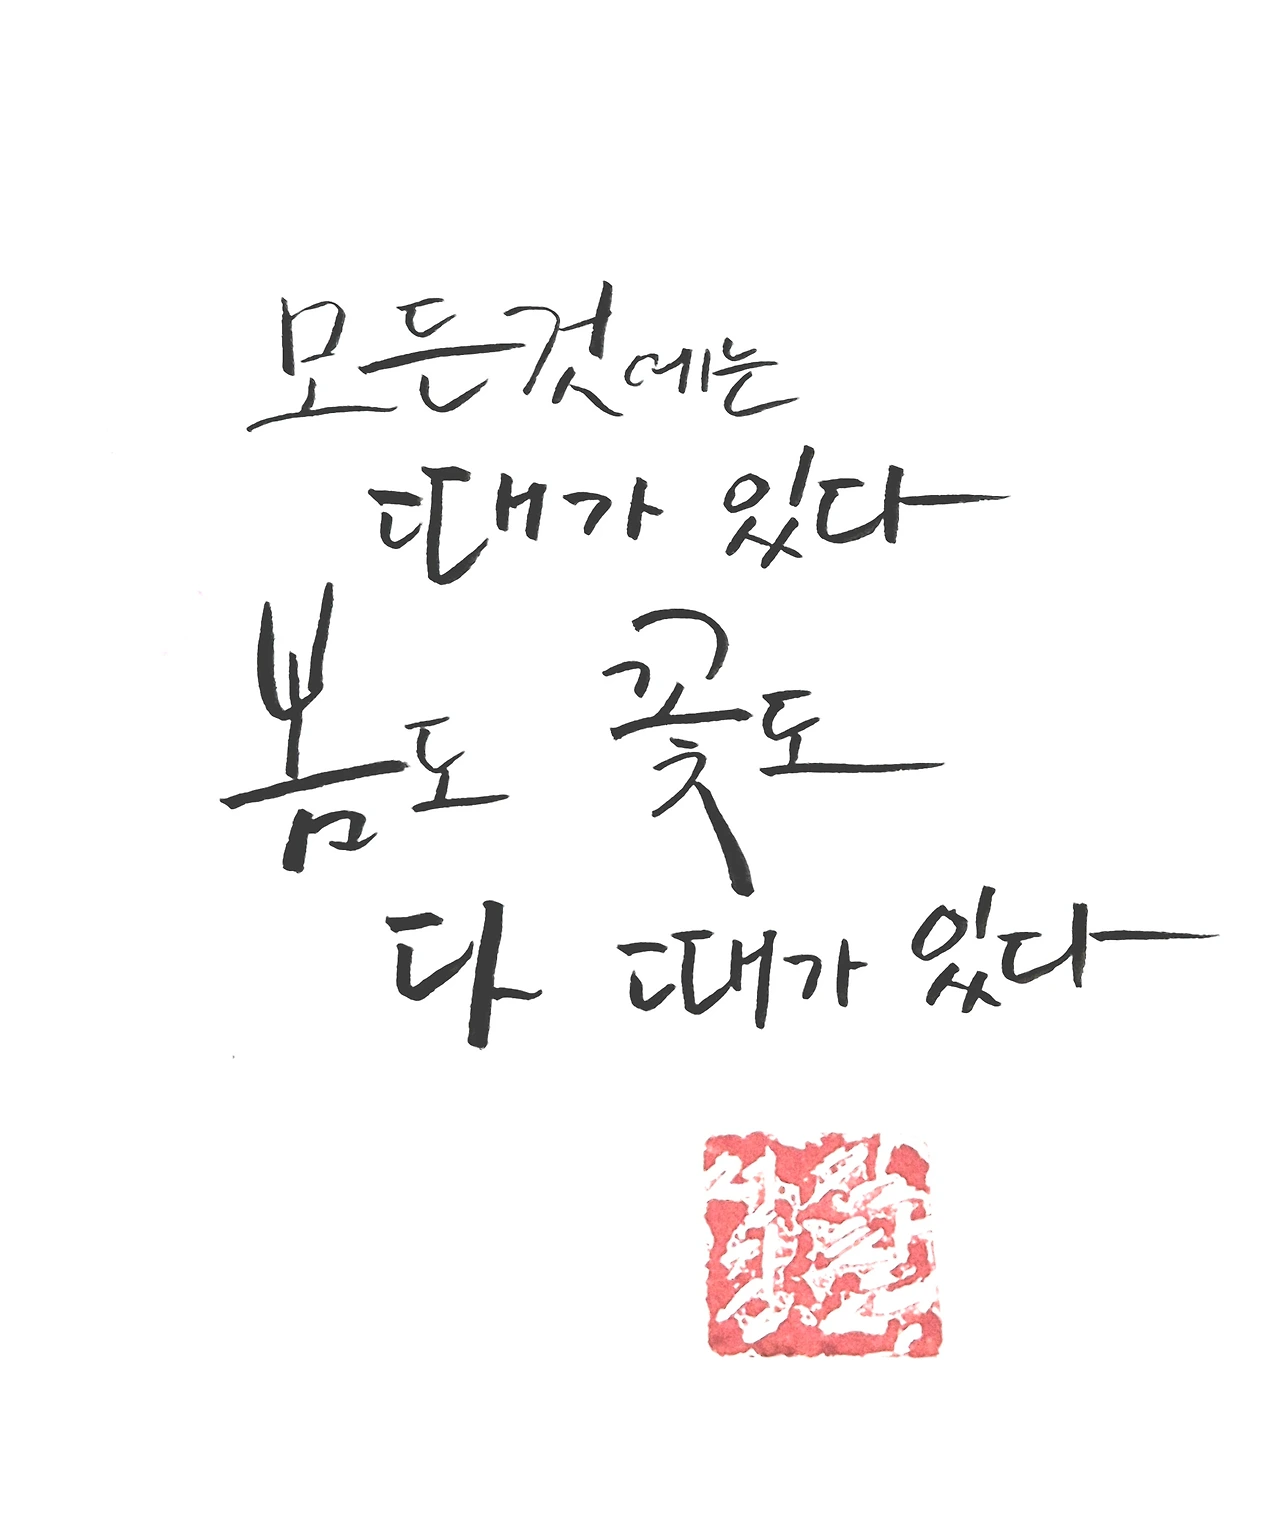 모든것에는
때가 있다
봄도 꽃도
다 때가 있다